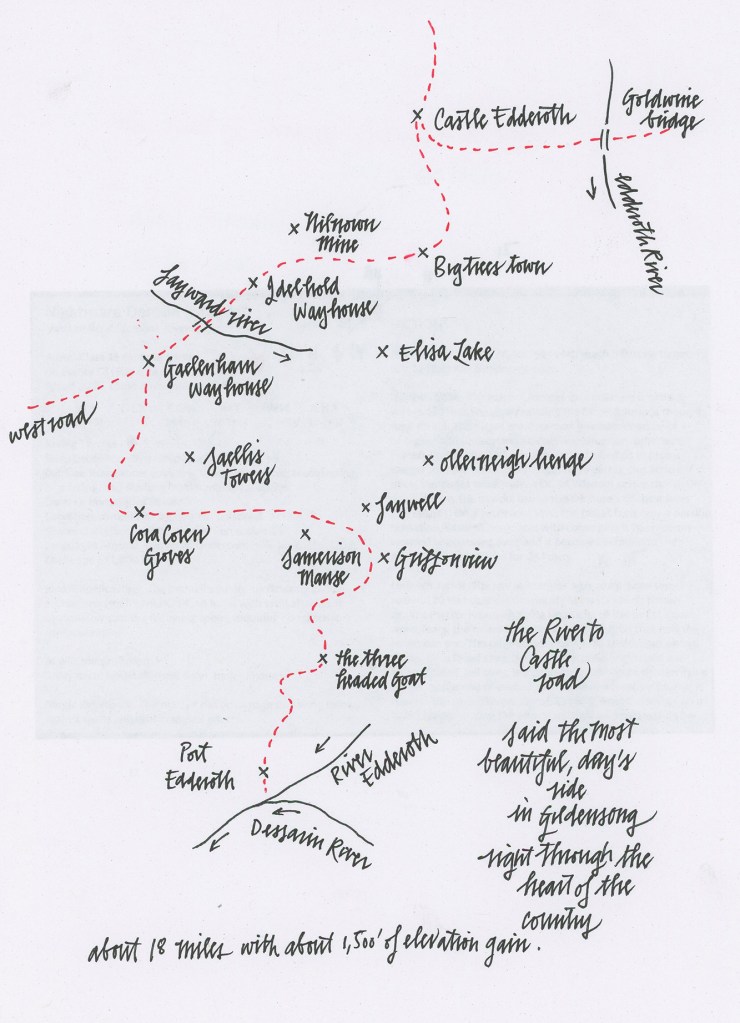 Castle Edderoth
Goldwine
bridge
Edderoth River
Nilnown
Mine
Bigtrees town
Idelhold
Wayhouse
Jayward river
Gaelenham
Wayhouse
Elisa Lake
west road
Jaellis
Towers
ollerneigh henge
Jaywell
Cora Coren
Groves
Jamerison
Manse
Griffonview
the three
headed Goat
the River to
Castle
road
Port
Edderoth
River
Edderoth
Dessarin River
said the most
beautiful, day's
ride
in Gildensong
right through the
heart of the
country
about 18 miles with about 1,500' of elevation gain.